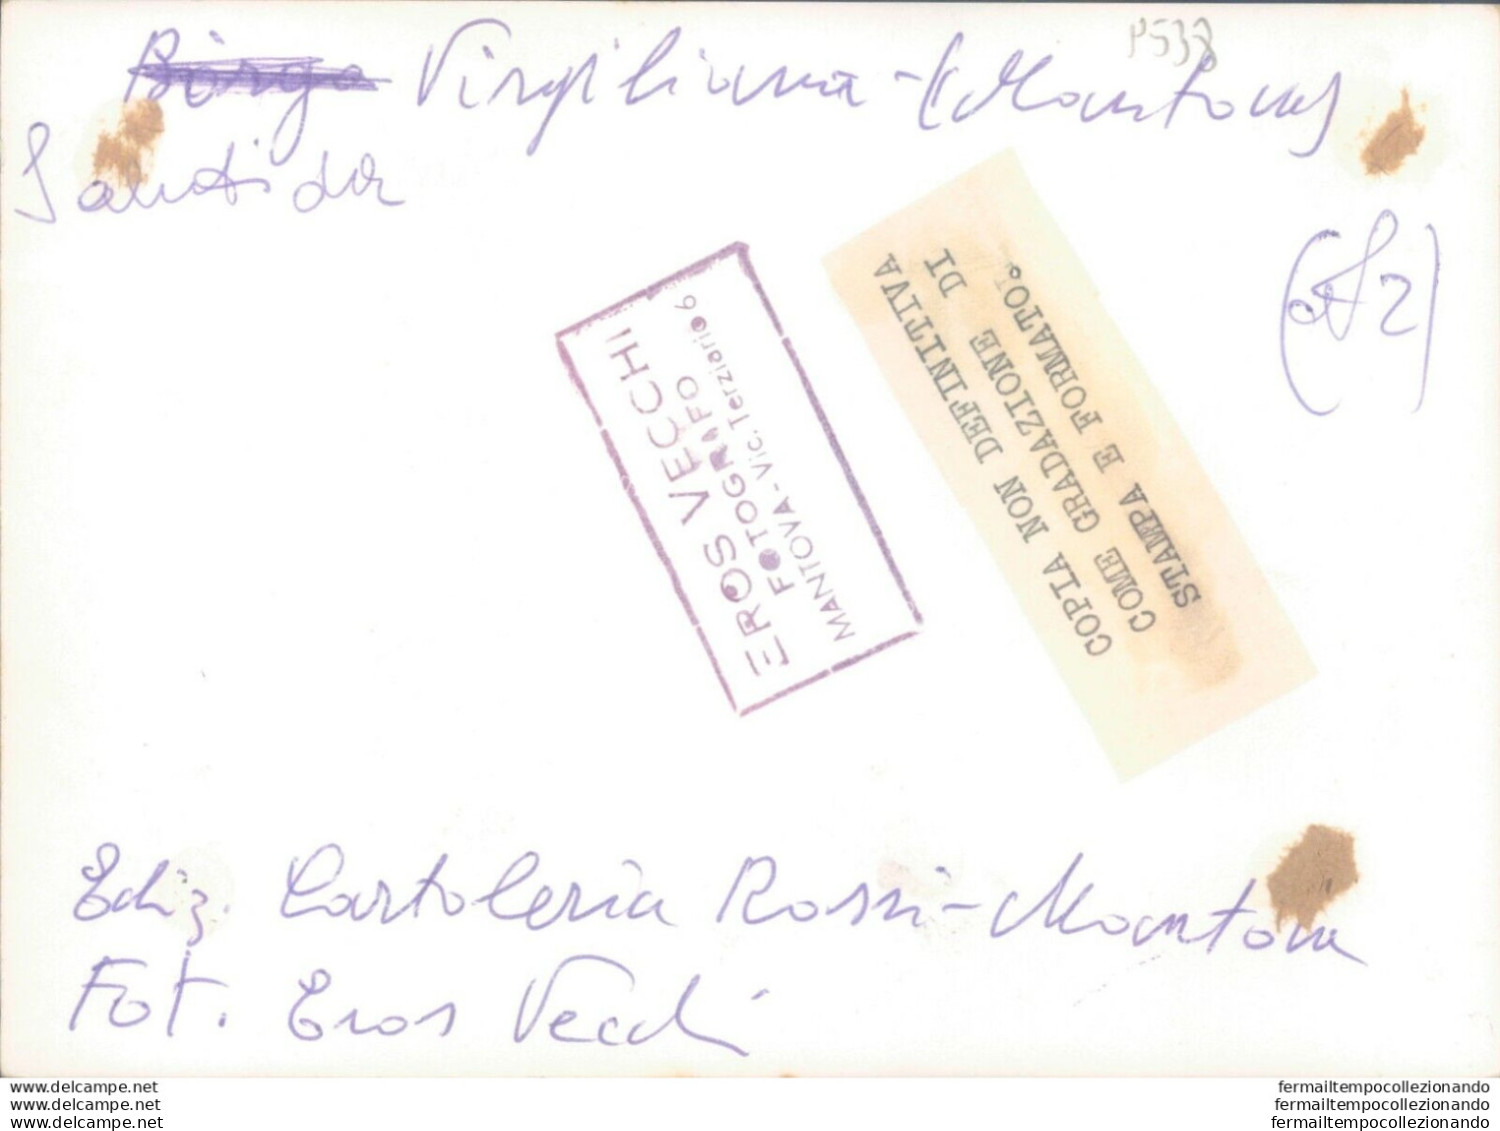 P538
Borgo Virgiliana - (Mantova)
EROS VECCHI
FOTOGRAFO
MANTOVA - Vic. Terziario 6
COPIA NON DEFINITIVA
COME GRADAZIONE DI
STAMPA E FORMATO.
Ediz. Cartoleria Rossi - Mantova
Fot. Eros Vecchi
www.delcampe.net
www.delcampe.net
www.delcampe.net
fermailtempocollezionando
fermailtempocollezionando
fermailtempocollezionando